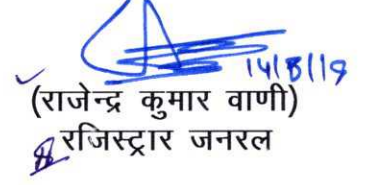 14/8/19
(राजेन्द्र कुमार वाणी)
रजिस्ट्रार जनरल